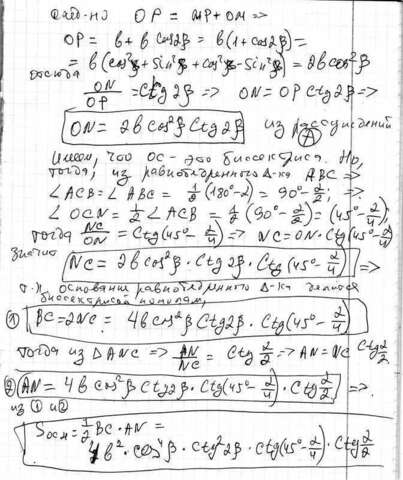 след-но OP = MP + OM =>
OP = b + b cos2β = b(1 + cos2β) =
= b(cos²β + sin²β + cos²β - sin²β) = 2b cos²β
отсюда
ON/OP = Ctg2β => ON = OP Ctg2β =>
ON = 2b cos²β Ctg2β из рассуждений
Имеем, что OC - это биссектриса. Но,
тогда, из равнобедренного Δ-ка ABC =>
∠ACB = ∠ABC = 1/2 (180° - α) = 90° - α/2; =>
∠OCN = 1/2 ∠ACB = 1/2 (90° - α/2) = (45° - α/4);
тогда NC/ON = Ctg(45° - α/4) => NC = ON · Ctg(45° - α/4)
значит
NC = 2b cos²β · Ctg2β · Ctg(45° - α/4) =>
т.к основание равнобедренного Δ-ка делится
биссектрисой пополам,
① BC = 2NC = 4b cos²β Ctg2β · Ctg(45° - α/4)
тогда из ΔANC => AN/NC = Ctg α/2 => AN = NC Ctg α/2
② AN = 4b cos²β Ctg2β · Ctg(45° - α/4) · Ctg α/2 =>
из ① и ②
Sосн = 1/2 BC · AN =
4b² · cos⁴β · Ctg²2β · Ctg(45° - α/4) · Ctg α/2